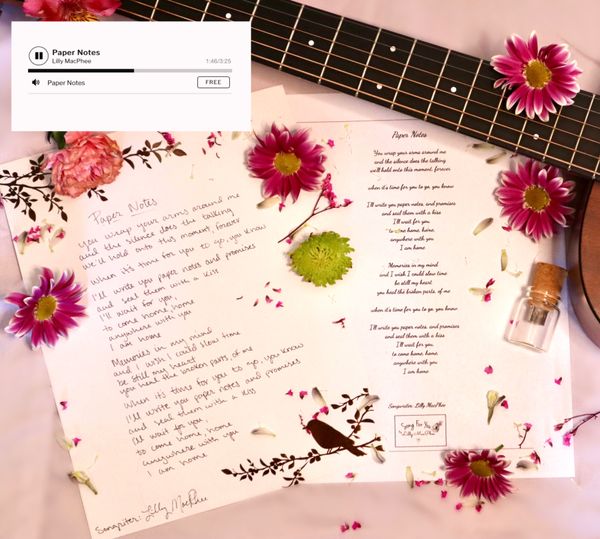 Paper Notes
Lilly MacPhee
1:46/3:25
Paper Notes
FREE
Paper Notes
you wrap your arms around me
and the silence does the talking
we'll hold onto this moment, forever
when it's time for you to go, you know
I'll write you paper notes and promises
and seal them with a kiss
I'll wait for you,
to come home, home
anywhere with you
I am home
Memories in my mind
and I wish I could slow time
be still my heart
you heal the broken parts, of me
when it's time for you to go, you know
I'll write you paper notes and promises
and seal them with a kiss
I'll wait for you,
to come home, home
anywhere with you
I am home
Songwriter: Lilly MacPhee
Paper Notes
You wrap your arms around me
and the silence does the talking
we'll hold onto this moment, forever
when it's time for you to go, you know
I'll write you paper notes, and promises
and seal them with a kiss
I'll wait for you
to come home, home,
anywhere with you
I am home
Memories in my mind
and I wish I could slow time
be still my heart
you heal the broken parts, of me
when it's time for you to go, you know
I'll write you paper notes, and promises
and seal them with a kiss
I'll wait for you
to come home, home,
anywhere with you
I am home
Songwriter: Lilly MacPhee
Song For You
Lilly MacPhee